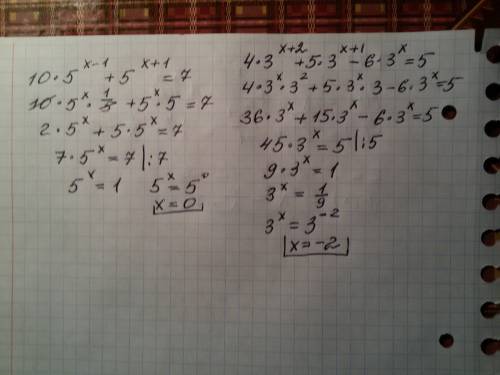 10·5^(x-1) + 5^(x+1) = 7
10·5^x·1/5 + 5^x·5 = 7
2·5^x + 5·5^x = 7
7·5^x = 7 |:7
5^x = 1 5^x = 5^0
x = 0
4·3^(x+2) + 5·3^(x+1) - 6·3^x = 5
4·3^x·3^2 + 5·3^x·3 - 6·3^x = 5
36·3^x + 15·3^x - 6·3^x = 5
45·3^x = 5 |:5
9·3^x = 1
3^x = 1/9
3^x = 3^(-2)
x = -2